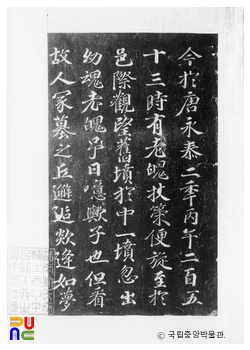 今於唐永泰二季丙午二百五
十三時有老魄扙策便旋至於
邑際觀望舊墳於中一墳忽出
幼魂老魄弔曰噫歟子也但看
故人冢墓之丘邂逅欻逢如夢
© 국립중앙박물관.